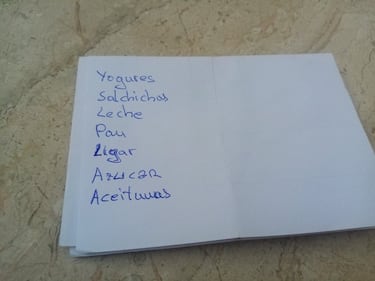 Yogures
Salchichas
Leche
Pan
Ligar
Azucar
Aceitunas